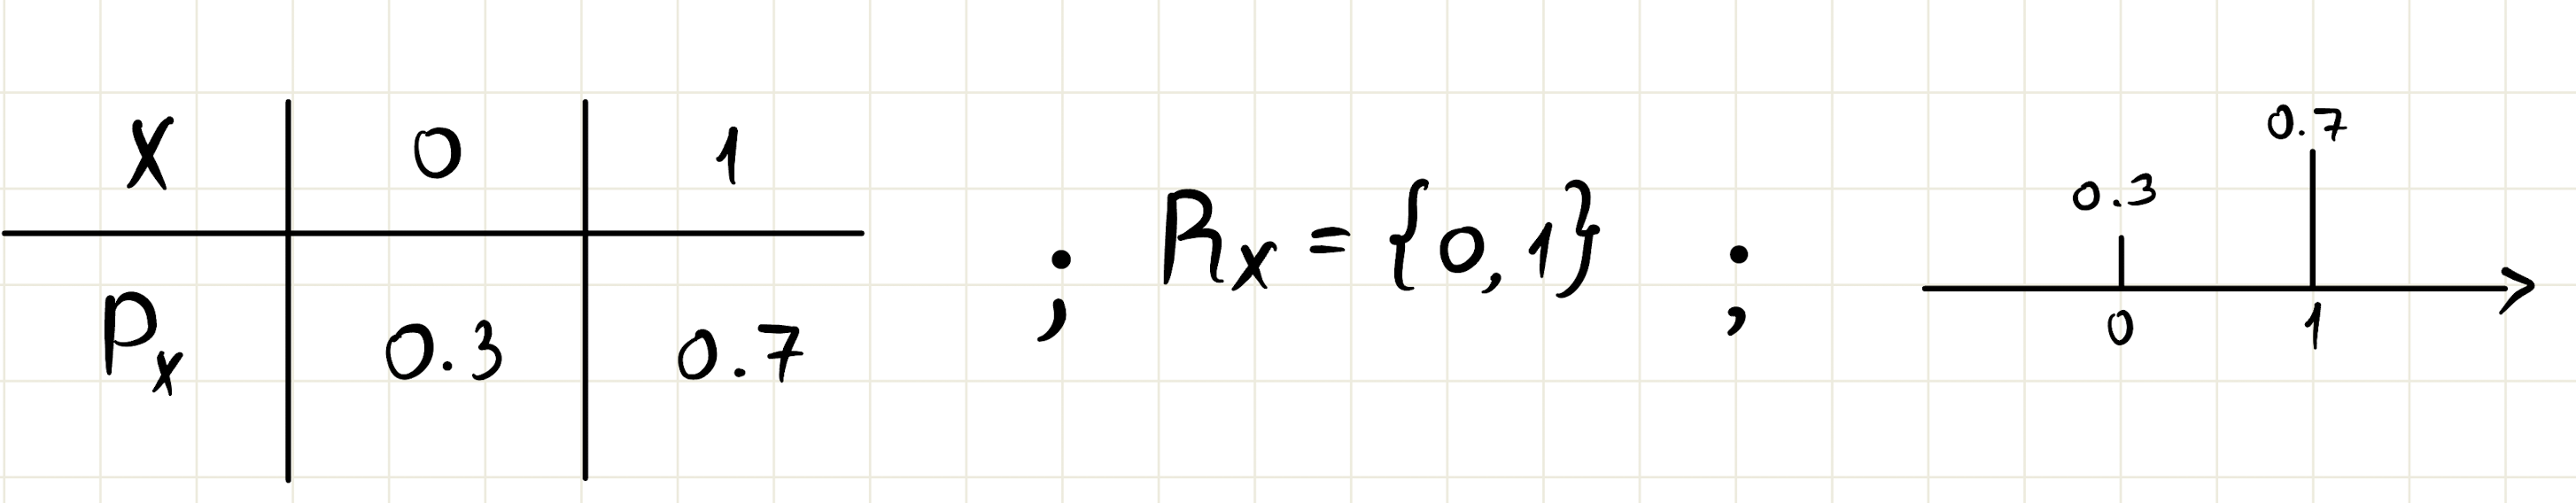 X 0 1
P_X 0.3 0.7
; R_X = {0,1} ;
0.3 0.7
0 1